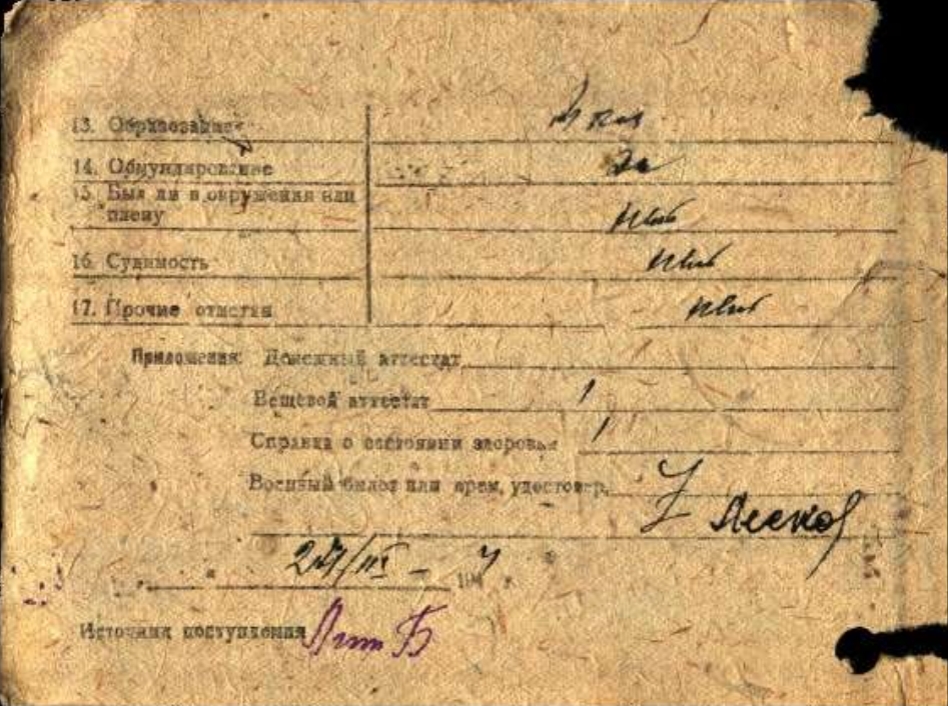 13. Образование
14. Обмундирование да
15. Был ли в окружении или
плену нет
16. Судимость нет
17. Прочие отметки нет
Приложения: Денежный аттестат
Вещевой аттестат 1
Справка о состоянии здоровья 1
Военный билет или врем. удостовер.
Лесков
194
Источник поступления